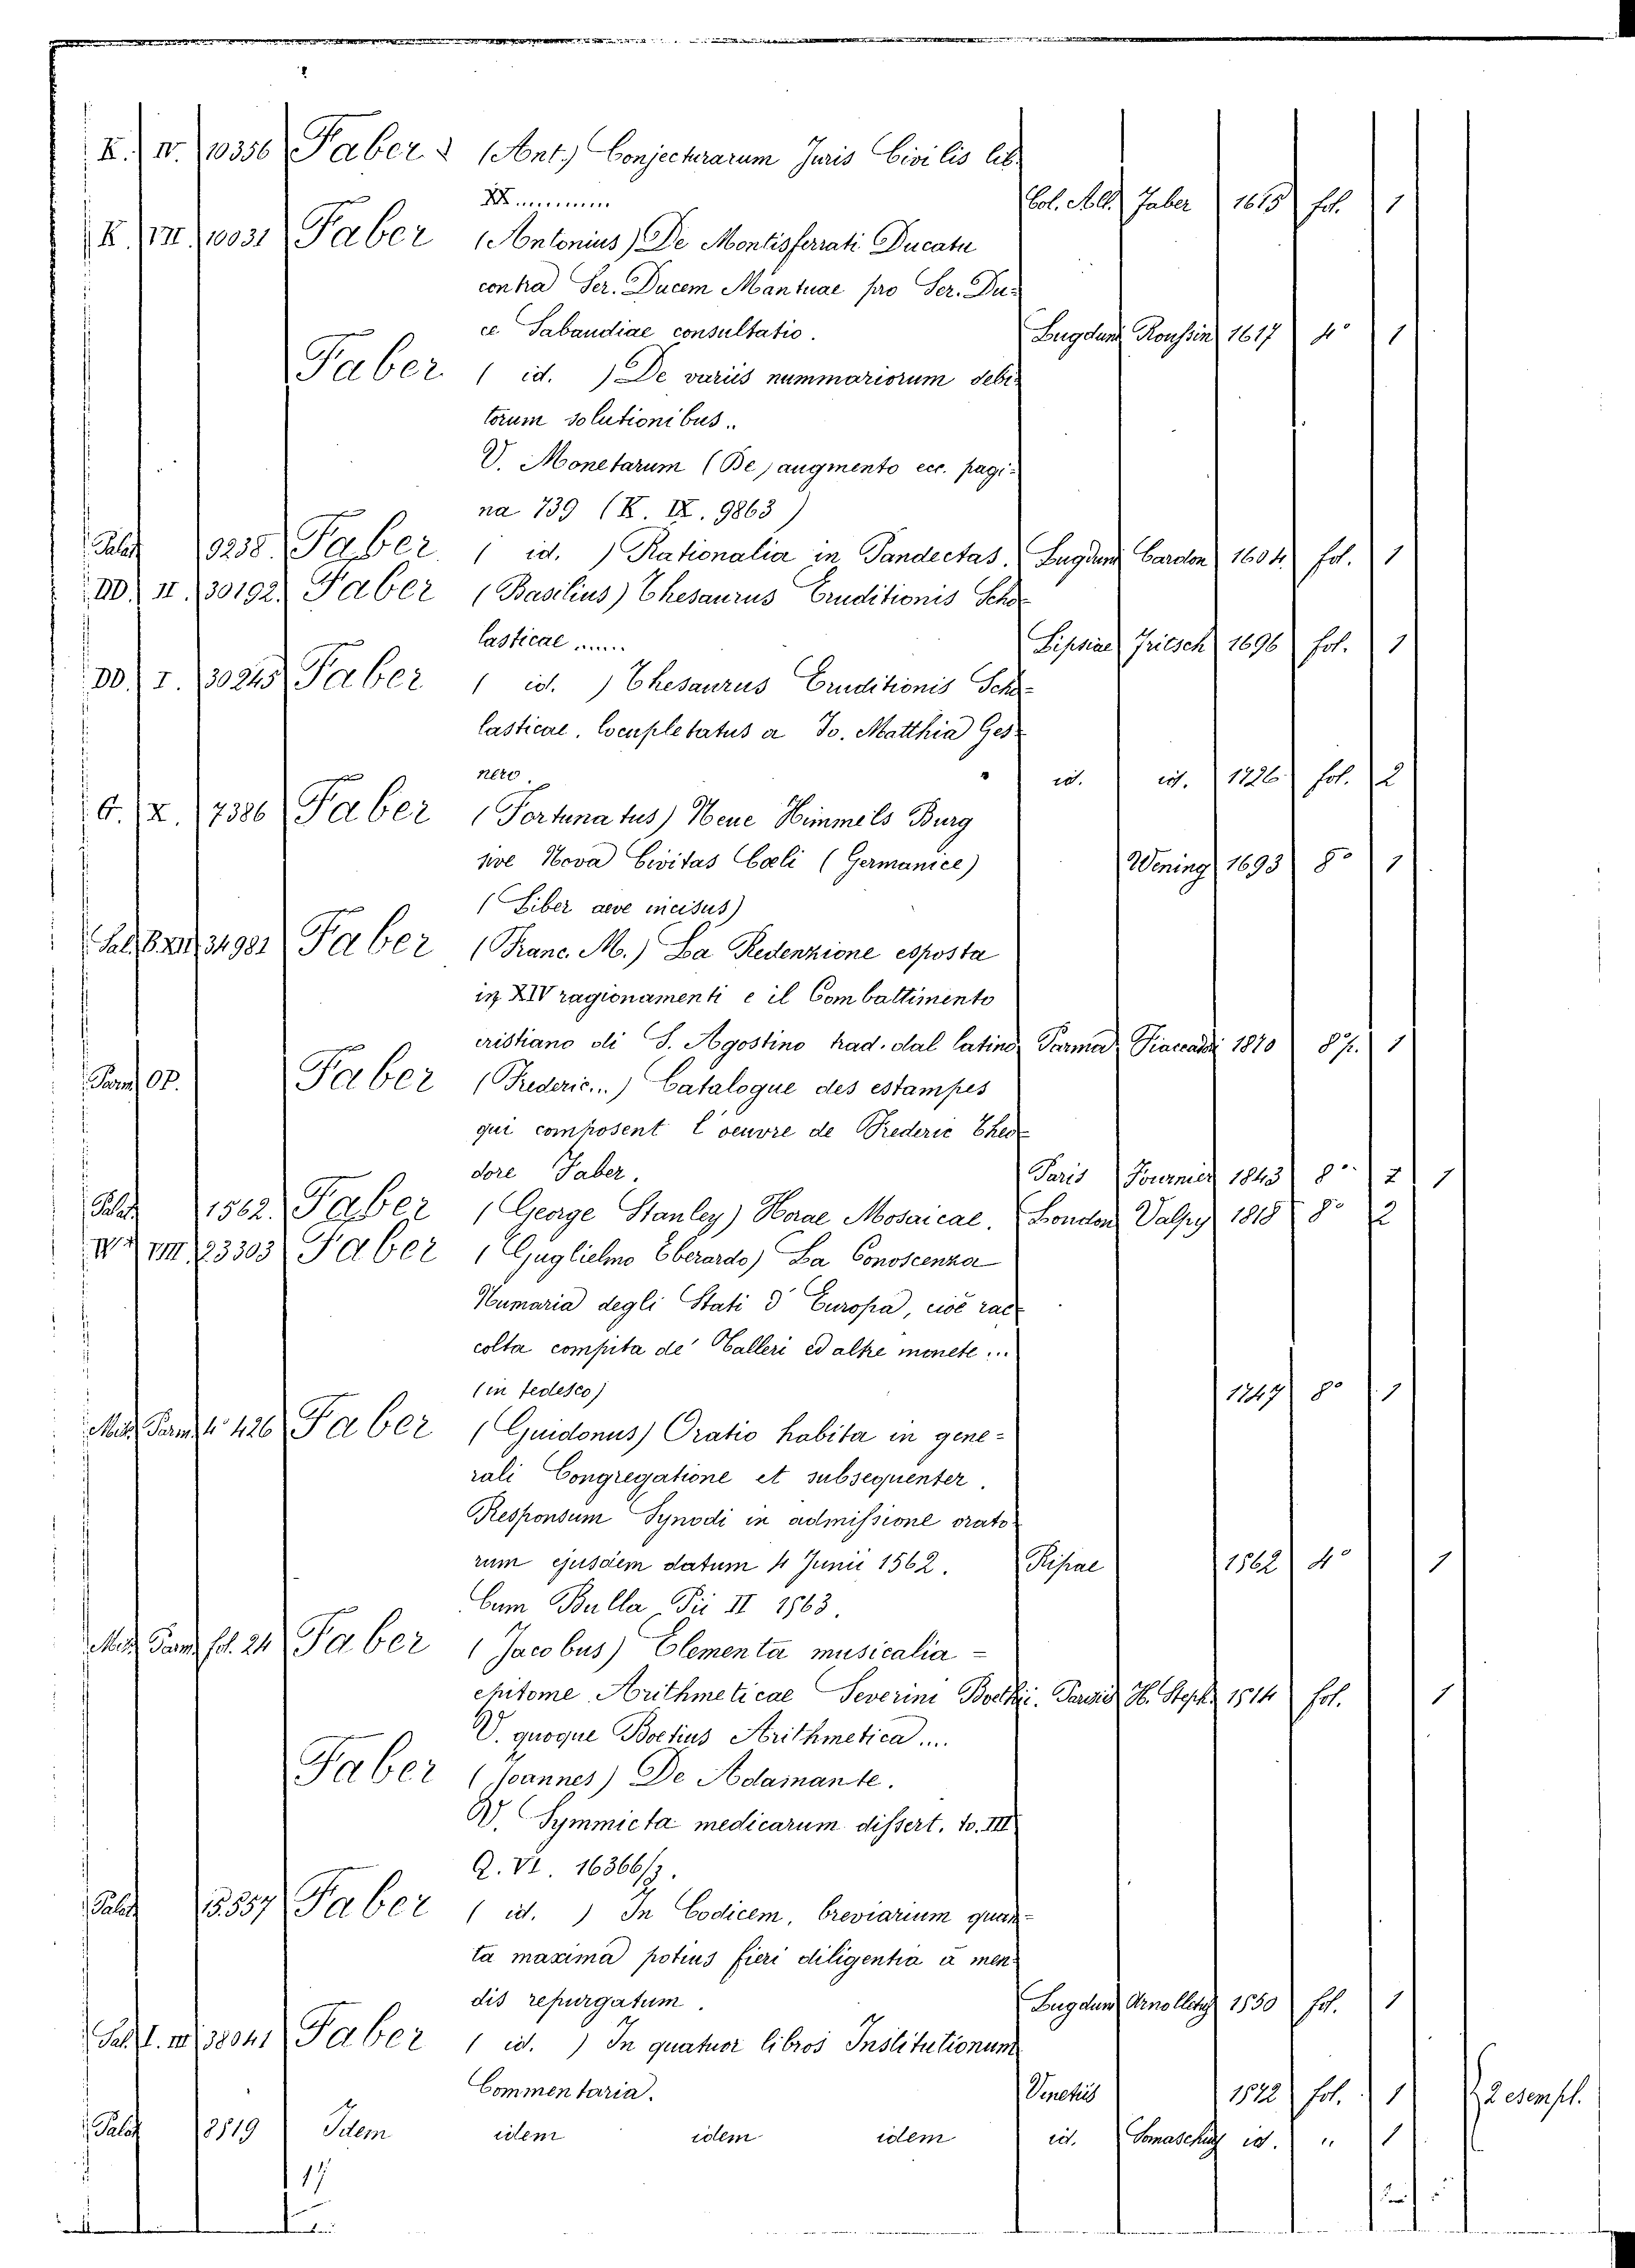 K. IV. 10356 Faber (Ant.) Conjecturarum Juris Civilis lib.
XX.......... Col. All. Faber 1615 fol. 1
K. VII. 10031 Faber (Antonius) De Montisferrati Ducatu
contra Ser. Ducem Mantuae pro Ser. Du-
ce Sabaudiae consultatio. Lugduni Roussin 1617 4° 1
Faber ( id. ) De variis nummariorum debi-
torum solutionibus..
V. Monetarum (De) augmento ecc. pagi-
na 739 (K. IX. 9863)
Palat 9238. Faber ( id. ) Rationalia in Pandectas. Lugduni Cardon 1604 fol. 1
DD. II. 30192. Faber (Basilius) Thesaurus Eruditionis Scho-
lasticae ...... Lipsiae Fritsch 1696 fol. 1
DD. I. 30245 Faber ( id. ) Thesaurus Eruditionis Scho-
lasticae, locupletatus a Jo. Matthia Ges-
nero. id. id. 1726 fol. 2
G. X. 7386 Faber (Fortunatus) Neue Himmels Burg
sive Nova Civitas Coeli (Germanice) Wening 1693 8° 1
(Liber aeve incisus)
Sal. B. XII 34981 Faber (Franc. M.) La Redenzione esposta
in XIV ragionamenti e il Combattimento
cristiano di S. Agostino trad. dal latino Parma 1810 8°p. 1
Parm OP. Faber (Frederic...) Catalogue des estampes
qui composent l'oeuvre de Frederic Theo-
dore Faber. Paris Fournier 1843 8° 1
Palat. 1562. Faber (George Stanley) Horae Mosaicae. London Valpy 1818 8° 2
VIII. 23303 Faber (Guglielmo Eberardo) La Conoscenza
Numaria degli Stati d'Europa, cioè rac-
colta compita de' Talleri ed altre monete...
(in tedesco) 1747 8° 1
Misc. Parm. 4° 426 Faber (Guidonus) Oratio habita in gene-
rali Congregatione et subsequenter.
Responsum Synodi in admissione orato-
rum ejusdem datum 4 Junii 1562. Ripae 1562 4° 1
Cum Bulla Pii II 1563.
Misc. Parm. fol. 24 Faber (Jacobus) Elementa musicalia -
epitome Arithmeticae Severini Boethii. Parisiis H. Steph. 1514 fol. 1
V. quoque Boetius Arithmetica....
Faber (Joannes) De Adamante.
V. Symmicta medicarum dissert. to. III
Q. VI. 16366/3.
Palat 15557 Faber ( id. ) In Codicem, breviarium quan-
ta maxima potius fieri diligentia a men-
dis repurgatum. Lugduni 1550 fol. 1
Sal. I. III 38041 Faber ( id. ) In quatuor libros Institutionum
Commentaria. Venetiis 1522 fol. 1 2 esempl.
Palat 12519 Idem idem idem idem id. id. " 1
17